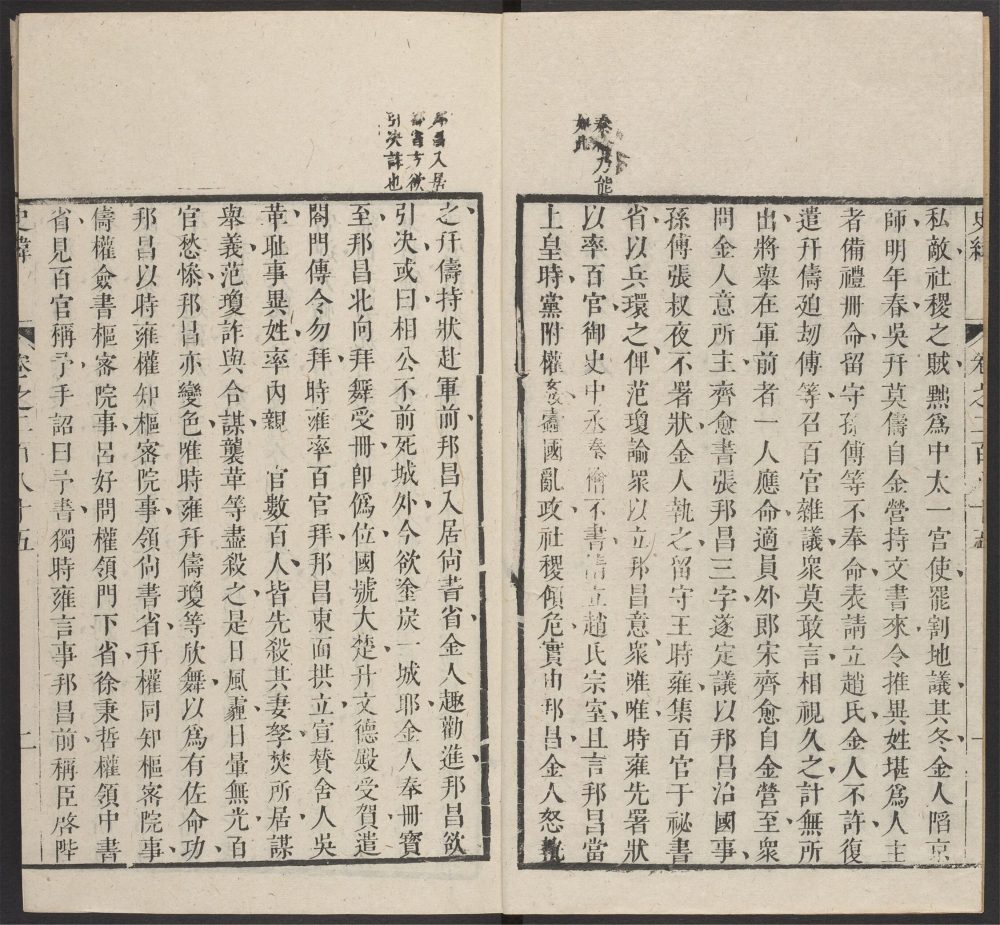 秦乃能
如此
私敵社稷之賊黜爲中太一宮使罷割地議其冬金人陷京
師明年春吳幵莫儔自金營持文書來令推異姓堪爲人主
者備禮冊命留守孫傅等不奉命表請立趙氏金人不許復
遣幵儔廹刼傅等召百官雜議衆莫敢言相視久之計無所
出將舉在軍前者一人應命適員外郎宋齊愈自金營至衆
問金人意所主齊愈書張邦昌三字遂定議以邦昌治國事
孫傅張叔夜不署狀金人執之留守王時雍集百官于祕書
省以兵環之俾范瓊諭衆以立邦昌意衆唯唯時雍先署狀
以率百官御史中丞秦檜不書請立趙氏宗室且言邦昌當
上皇時黨附權姦蠹國亂政社稷傾危實由邦昌金人怒執
史緯
卷之二百
一
邦昌入居
都省方欲
引決詐也
之幵儔持狀赴軍前邦昌入居尙書省金人趣勸進邦昌欲
引決或曰相公不前死城外今欲塗炭一城耶金人奉冊寶
至邦昌北向拜舞受冊卽僞位國號大楚升文德殿受賀遣
閤門傳令勿拜時雍率百官拜邦昌東面拱立宣贊舍人吳
革耻事異姓率內親 官數百人皆先殺其妻孥焚所居謀
舉義范瓊詐與合謀襲革等盡殺之是日風霾日暈無光百
官愁慘邦昌亦變色唯時雍幵儔瓊等欣舞以爲有佐命功
邦昌以時雍權知樞密院事領尙書省幵權同知樞密院事
儔權僉書樞密院事呂好問權領門下省徐秉哲權領中書
省見百官稱予手詔曰予書獨時雍言事邦昌前稱臣啓陛
史緯
卷之二百八十五
二